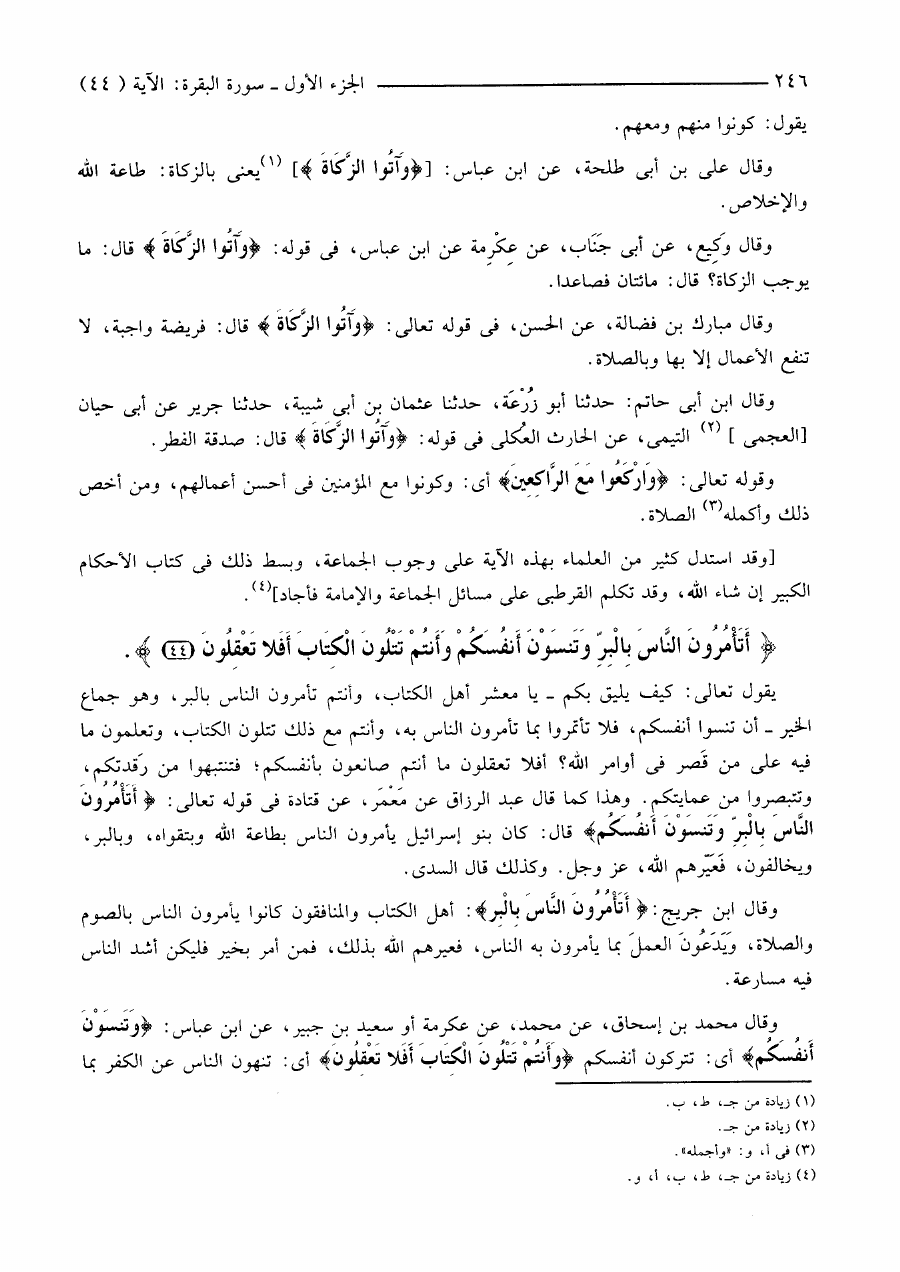 ٢٤٦ ــــــــــــــ الجزء الأول ـ سورة البقرة: الآية ( ٤٤)
يقول: كونوا منهم ومعهم.
وقال على بن أبى طلحة، عن ابن عباس: [﴿وَآتُوا الزَّكَاةَ ﴾] (١)يعنى بالزكاة: طاعة الله
والإخلاص.
وقال وَكِيع، عن أبى جَنَاب، عن عِكْرِمة عن ابن عباس، فى قوله: ﴿وَآتُوا الزَّكَاةَ ﴾ قال: ما
يوجب الزكاة؟ قال: مائتان فصاعدا.
وقال مبارك بن فضالة، عن الحسن، فى قوله تعالى: ﴿وَآتُوا الزَّكَاةَ ﴾ قال: فريضة واجبة، لا
تنفع الأعمال إلا بها وبالصلاة.
وقال ابن أبى حاتم: حدثنا أبو زُرْعَة، حدثنا عثمان بن أبي شيبة، حدثنا جرير عن أبى حيان
[العجمى ] (٢) التيمى، عن الحارث العُكلى فى قوله: ﴿وَآتُوا الزَّكَاةَ ﴾ قال: صدقة الفطر.
وقوله تعالى: ﴿وَارْكَعُوا مَعَ الرَّاكِعِينَ﴾ أى: وكونوا مع المؤمنين فى أحسن أعمالهم، ومن أخص
ذلك وأكمله(٣) الصلاة.
[وقد استدل كثير من العلماء بهذه الآية على وجوب الجماعة، وبسط ذلك فى كتاب الأحكام
الكبير إن شاء الله، وقد تكلم القرطبى على مسائل الجماعة والإمامة فأجاد](٤).
﴿ أَتَأْمُرُونَ النَّاسَ بِالْبِرِّ وَتَنسَوْنَ أَنفُسَكُمْ وَأَنتُمْ تَتْلُونَ الْكِتَابَ أَفَلا تَعْقِلُونَ (٤٤) ﴾.
يقول تعالى: كيف يليق بكم ـ يا معشر أهل الكتاب، وأنتم تأمرون الناس بالبر، وهو جماع
الخير ـ أن تنسوا أنفسكم، فلا تأتمروا بما تأمرون الناس به، وأنتم مع ذلك تتلون الكتاب، وتعلمون ما
فيه على من قَصر فى أوامر الله؟ أفلا تعقلون ما أنتم صانعون بأنفسكم؛ فتنتبهوا من رَقدتكم،
وتتبصروا من عمايتكم. وهذا كما قال عبد الرزاق عن مَعْمَر، عن قتادة فى قوله تعالى: ﴿ أَتَأْمُرُونَ
النَّاسَ بِالْبِرِّ وَتَنسَوْنَ أَنفُسَكُمْ﴾ قال: كان بنو إسرائيل يأمرون الناس بطاعة الله وبتقواه، وبالبر،
ويخالفون، فَعَيّرهم الله، عز وجل. وكذلك قال السدى.
وقال ابن جريج: ﴿ أَتَأْمُرُونَ النَّاسَ بِالْبِرِ﴾: أهل الكتاب والمنافقون كانوا يأمرون الناس بالصوم
والصلاة، وَيَدَعُونَ العملَ بما يأمرون به الناس، فعيرهم الله بذلك، فمن أمر بخير فليكن أشد الناس
فيه مسارعة.
وقال محمد بن إسحاق، عن محمد، عن عكرمة أو سعيد بن جبير، عن ابن عباس: ﴿وَتَنسَوْنَ
أَنفُسَكُمْ﴾ أى: تتركون أنفسكم ﴿وَأَنتُمْ تَتْلُونَ الْكِتَابَ أَفَلا تَعْقِلُونَ﴾ أى: تنهون الناس عن الكفر بما
(١) زيادة من جـ، ط، ب.
(٢) زيادة من جـ.
(٣) فى أ، و: «وأجمله».
(٤) زيادة من جـ، ط، ب، أ، و.